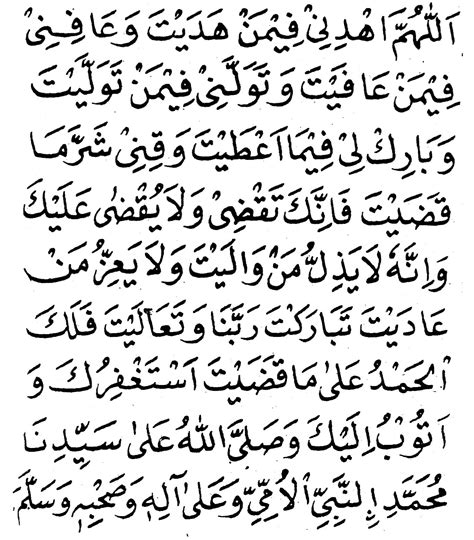 اَللّٰهُمَّ اهْدِنِيْ فِيْمَنْ هَدَيْتَ وَعَافِنِيْ
فِيْمَنْ عَافَيْتَ وَتَوَلَّنِيْ فِيْمَنْ تَوَلَّيْتَ
وَبَارِكْ لِيْ فِيْمَا اَعْطَيْتَ وَقِنِيْ شَرَّمَا
قَضَيْتَ فَاِنَّكَ تَقْضِيْ وَلَا يُقْضٰى عَلَيْكَ
وَاِنَّهٗ لَا يَذِلُّ مَنْ وَالَيْتَ وَلَا يَعِزُّ مَنْ
عَادَيْتَ تَبَارَكْتَ رَبَّنَا وَتَعَالَيْتَ فَلَكَ
الْحَمْدُ عَلٰى مَا قَضَيْتَ اَسْتَغْفِرُكَ وَ
اَتُوْبُ اِلَيْكَ وَصَلَّى اللهُ عَلٰى سَيِّدِنَا
مُحَمَّدِ اِلنَّبِيِّ الْاُمِّيِّ وَعَلٰى آلِهٖ وَصَحْبِهٖ وَسَلَّمَ